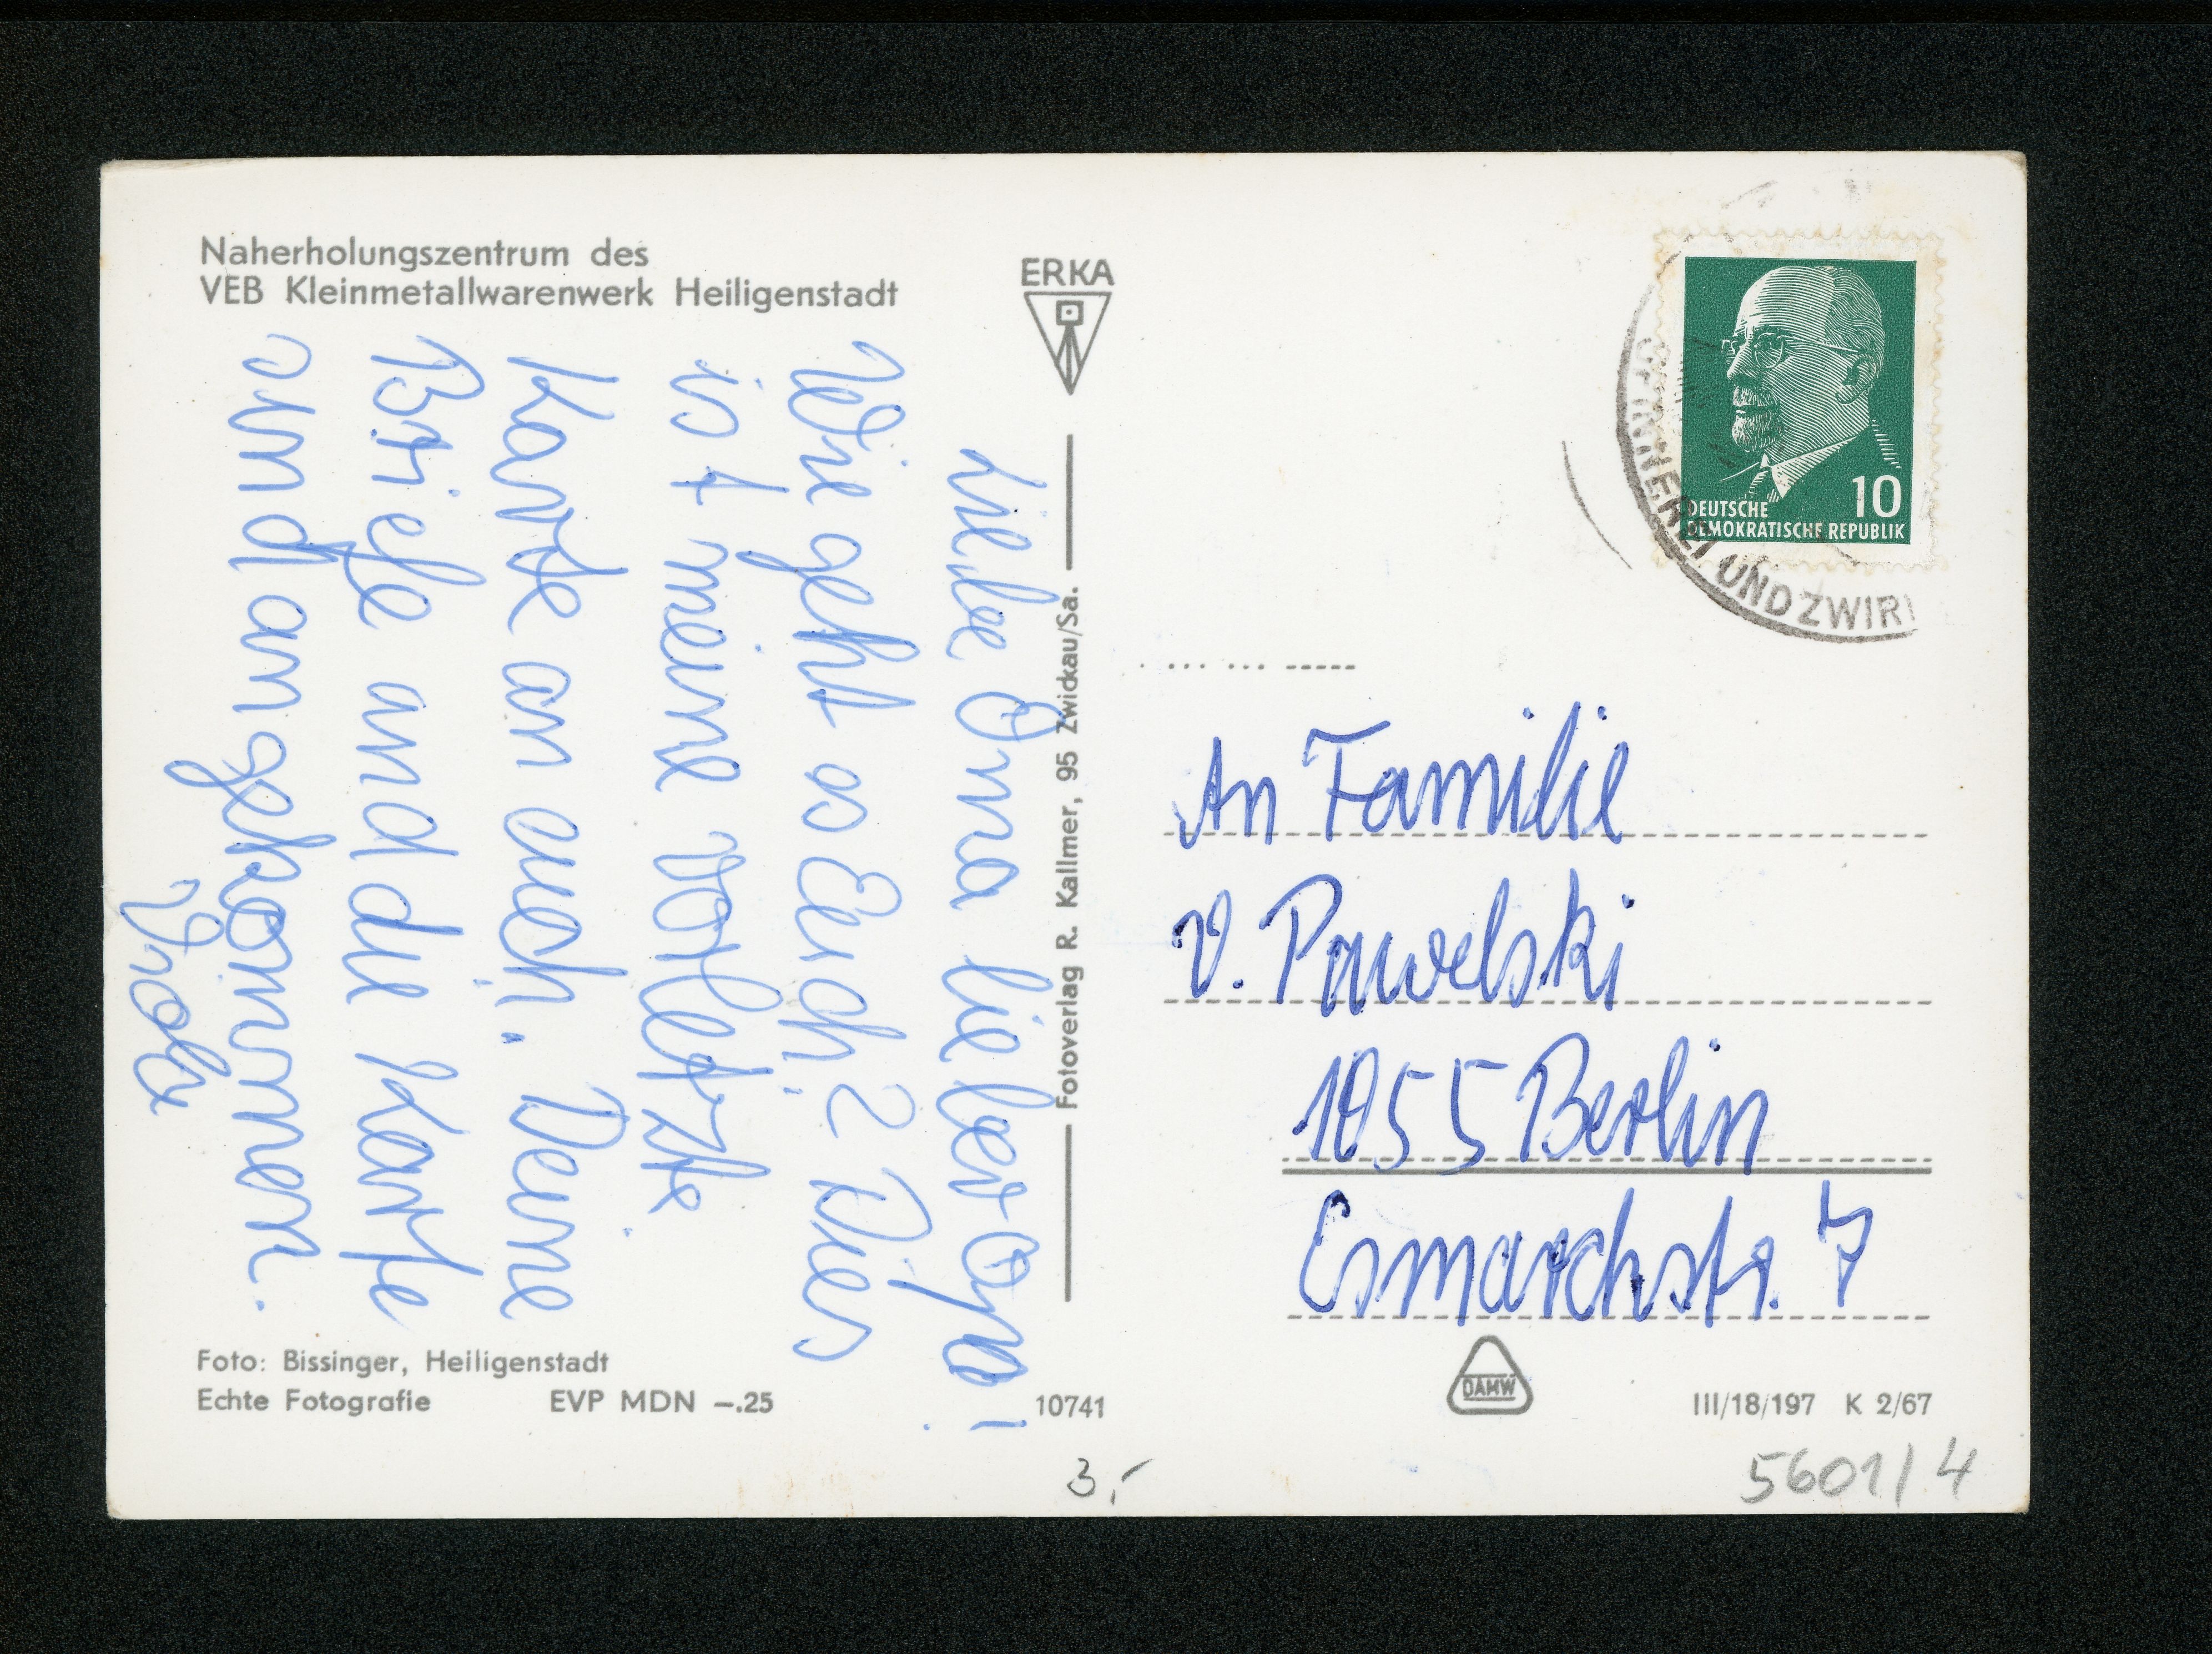 Naherholungszentrum des
VEB Kleinmetallwarenwerk Heiligenstadt
Liebe Oma lieber Opa!
Wie geht es Euch? Dies
ist meine vorletzte
Karte an euch. Deine
Briefe und die Karte
sind angekommen.
Viola
Foto: Bissinger, Heiligenstadt
Echte Fotografie EVP MDN –.25
ERKA
Fotoverlag R. Kallmer, 95 Zwickau/Sa.
10741
3,-
10
DEUTSCHE
DEMOKRATISCHE REPUBLIK
UND ZWIR
An Familie
V. Pawelski
1055 Berlin
Esmarchstr. 7
DAMW
III/18/197 K 2/67
5601/4